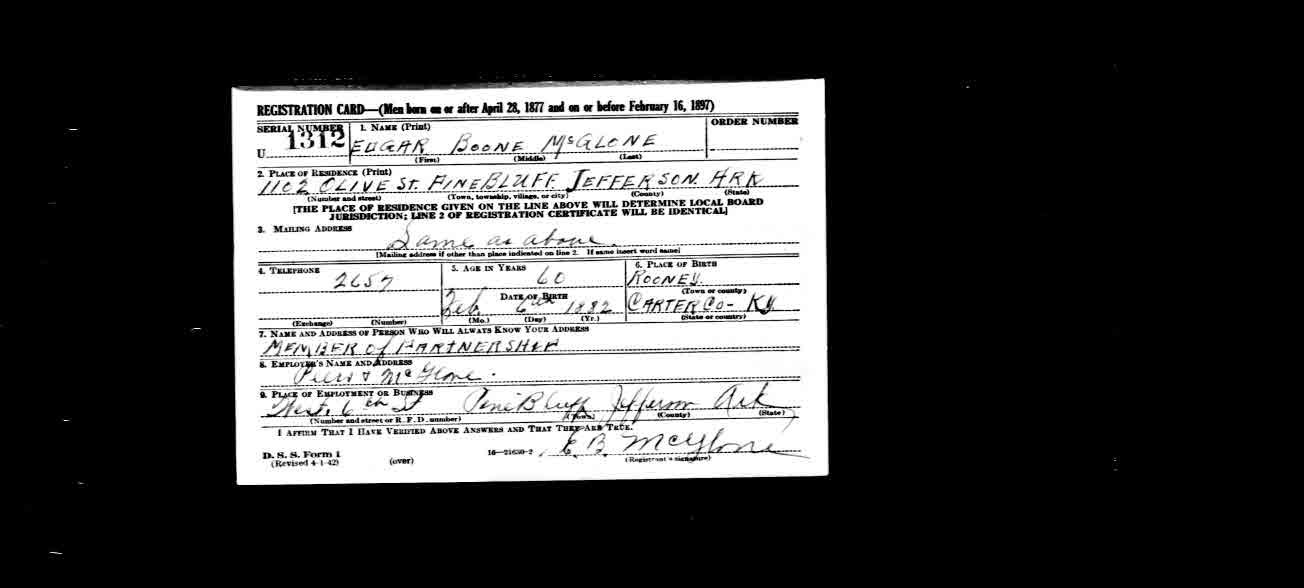 REGISTRATION CARD—(Men born on or after April 28, 1877 and on or before February 16, 1897)
SERIAL NUMBER 1. NAME (Print) ORDER NUMBER
U 1312 EDGAR BOONE McGLONE
(First) (Middle) (Last)
2. PLACE OF RESIDENCE (Print)
1102 OLIVE ST. PINE BLUFF. JEFFERSON. ARK
(Number and street) (Town, township, village, or city) (County) (State)
[THE PLACE OF RESIDENCE GIVEN ON THE LINE ABOVE WILL DETERMINE LOCAL BOARD
JURISDICTION; LINE 2 OF REGISTRATION CERTIFICATE WILL BE IDENTICAL]
3. MAILING ADDRESS
Same as above.
[Mailing address if other than place indicated on line 2. If same insert word same]
4. TELEPHONE 5. AGE IN YEARS 6. PLACE OF BIRTH
2657 60 ROONEY.
(Town or county)
DATE OF BIRTH
Feb. 6th 1882 CARTER CO- KY.
(Exchange) (Number) (Mo.) (Day) (Yr.) (State or country)
7. NAME AND ADDRESS OF PERSON WHO WILL ALWAYS KNOW YOUR ADDRESS
MEMBER of PARTNERSHIP
8. EMPLOYER'S NAME AND ADDRESS
& McGlone.
9. PLACE OF EMPLOYMENT OR BUSINESS
West. 6th St Pine Bluff Jefferson Ark
(Number and street or R. F. D. number) (Town) (County) (State)
I AFFIRM THAT I HAVE VERIFIED ABOVE ANSWERS AND THAT THEY ARE TRUE.
D. S. S. Form 1
(Revised 4-1-42) (over) 16—21630-2 E. B. McGlone
(Registrant's signature)